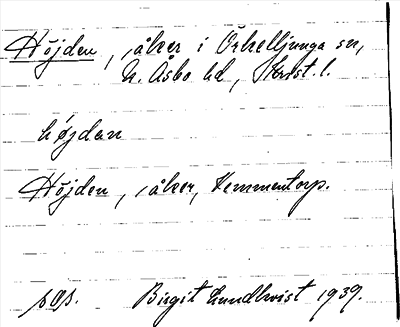 Höjden, åker i Örkelljunga sn,
N. Åsbo hd, Krist. l.
högdan
Höjden, åker, Hemmentorp.
Birgit Lundkvist 1939.